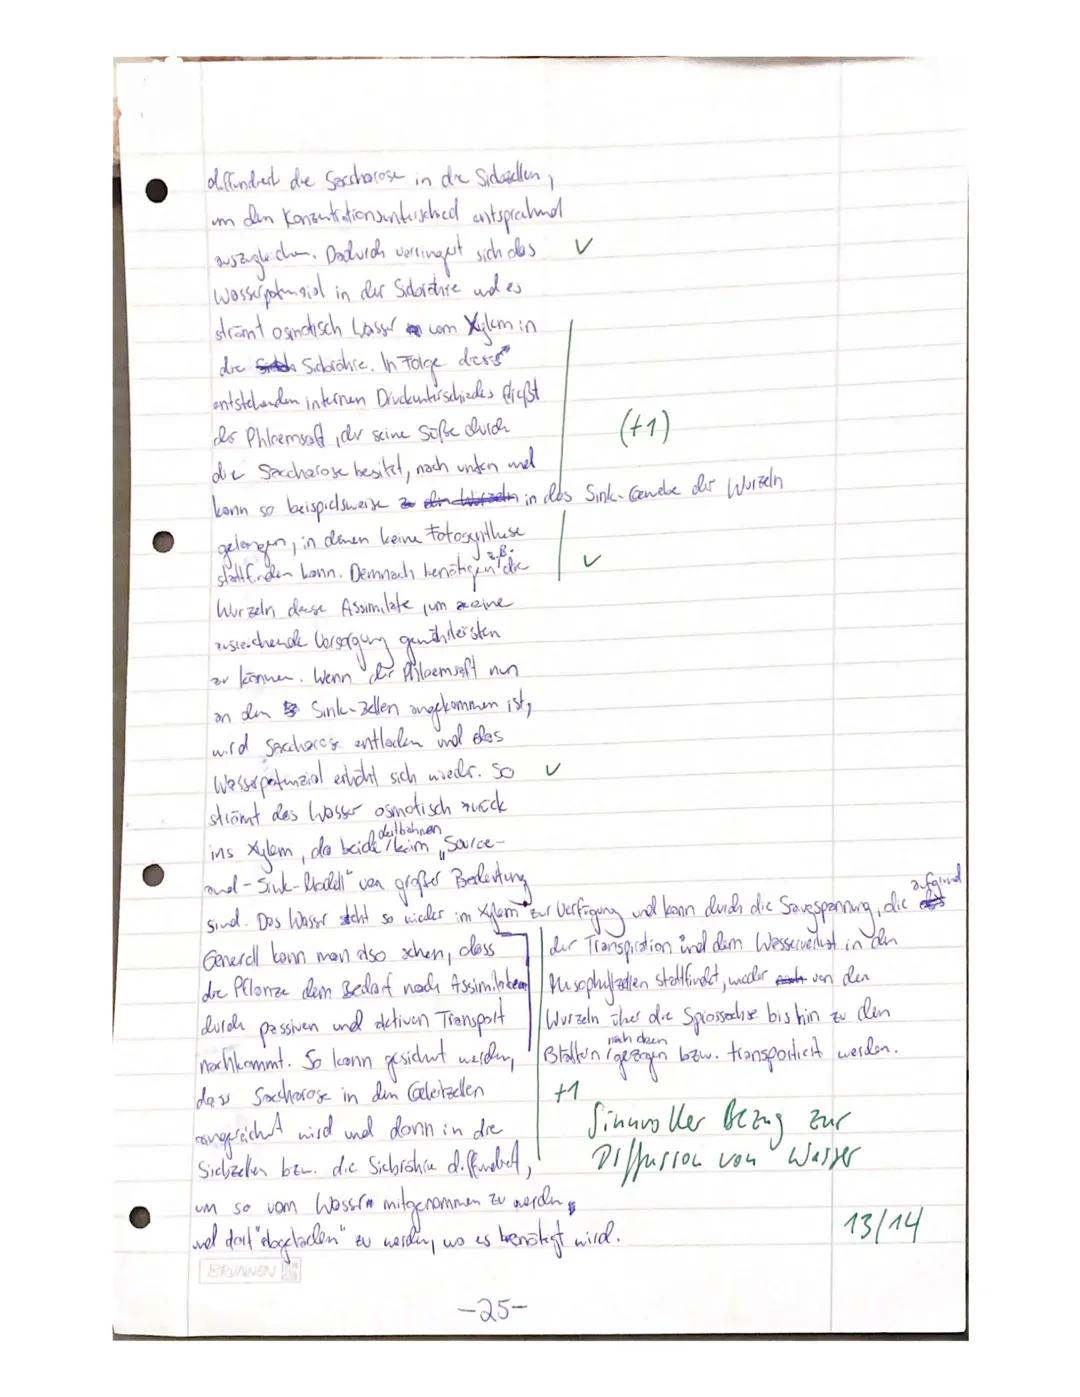 diffundiert die Saccharose in die Siebzellen,
um den Konzentrationsunterschied entsprechend
auszugleichen. Dadurch verringert sich das ✓
Wasserpotenzial in der Siebröhre und es
strömt osmotisch Wasser vom Xylem in
die Siebröhre. In Folge dieses
entstehenden internen Druckunterschiedes fließt
der Phloemsaft, der seine Süße durch (+1)
die Saccharose besitzt, nach unten und
kann so beispielsweise in das Sink-Gewebe der Wurzeln
gelangen, in denen keine Fotosynthese
stattfinden kann. Demnach benötigen z.B. die ✓
Wurzeln diese Assimilate, um eine
ausreichende Versorgung gewährleisten
zu können. Wenn der Phloemsaft nun
an den Sink-Zellen angekommen ist,
wird Saccharose entladen und das
Wasserpotenzial erhöht sich wieder. So ✓
strömt das Wasser osmotisch zurück
ins Xylem, da beide Leitbahnen beim „Source-
and-Sink-Modell" von großer Bedeutung
sind. Das Wasser steht so wieder im Xylem zur Verfügung und kann durch die Saugspannung, die aufgrund
der Transpiration und dem Wasserverlust in den
Mesophyllzellen stattfindet, wieder von den
Wurzeln über die Sprossachse bis hin zu den
Blättern nach oben gezogen bzw. transportiert werden.
Generell kann man also sehen, dass
die Pflanze dem Bedarf nach Assimilaten
durch passiven und aktiven Transport
nachkommt. So kann gesichert werden,
dass Saccharose in den Geleitzellen
angereichert wird und dann in die
Siebzellen bzw. die Siebröhre diffundiert,
um so vom Wasser mitgenommen zu werden
und dort "abgeladen" zu werden, wo es benötigt wird.
+1
Sinnvoller Bezug zur
Diffusion von Wasser
13/14
BRUNNEN
-25-